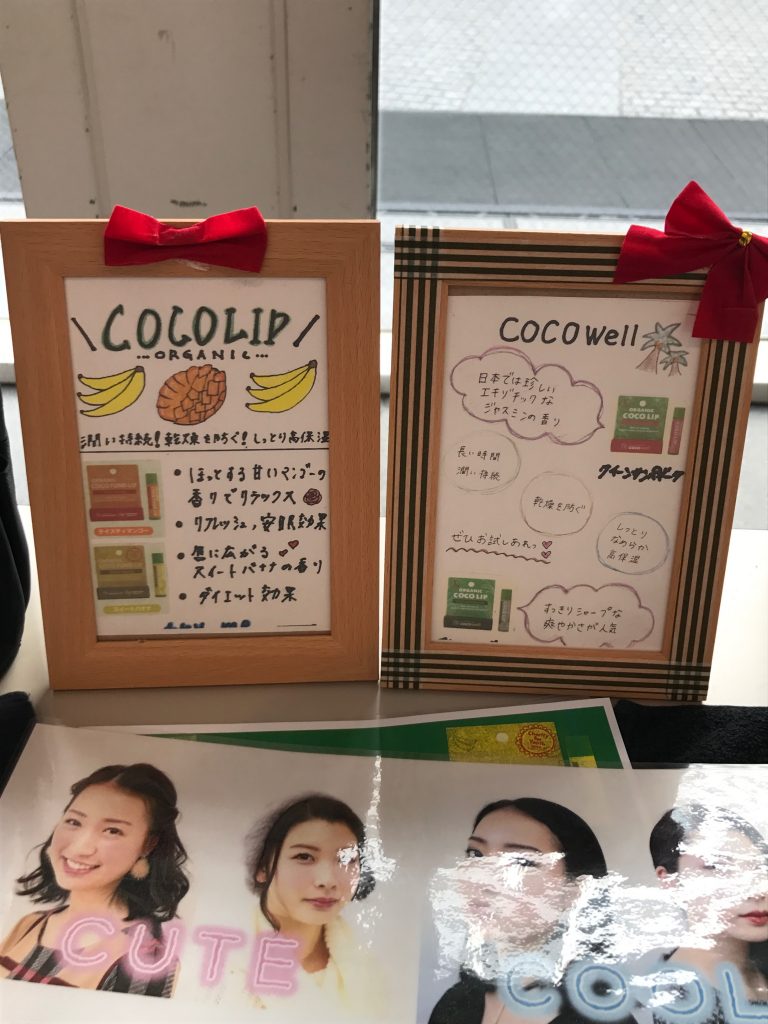 COCOLIP
...ORGANIC...
潤い持続!乾燥を防ぐ!しっとり高保湿
ORGANIC
• ほっとする甘いマンゴーの
香りでリラックス
• リフレッシュ,安眠効果
• 唇に広がる
スイートバナナの香り
• ダイエット効果
テイスティマンゴー
スイートバナナ
COCOwell
日本では珍しい
エキゾチックな
ジャスミンの香り
ORGANIC
COCO LIP
長い時間
潤い持続
乾燥を防ぐ
しっとり
なめらか
高保湿
ぜひお試しあれっ
ORGANIC
COCO LIP
すっきりシャープな
爽やかさが人気
Charity
for
Youth
CUTE
COOL